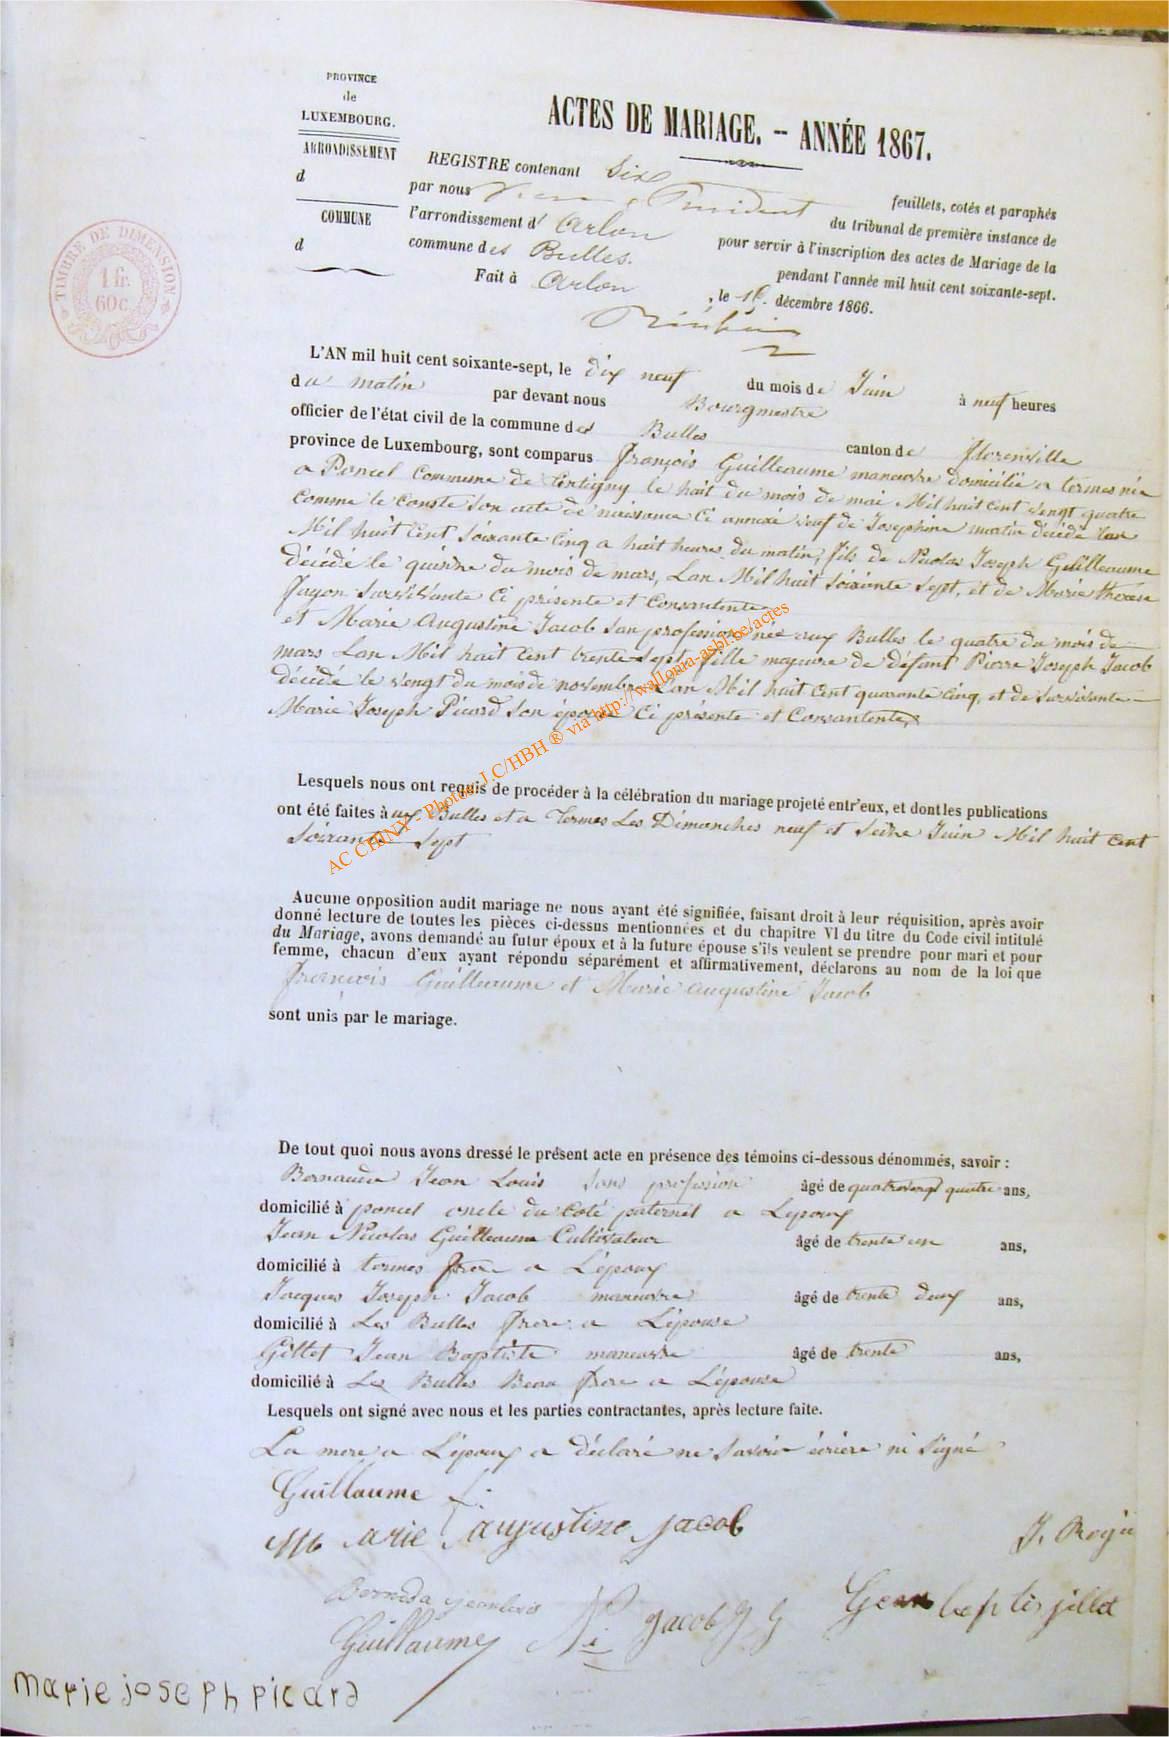 PROVINCE
de
LUXEMBOURG.
ARRONDISSEMENT
d
COMMUNE
d
TIMBRE DE DIMENSION
1 fr.
60 c.
ACTES DE MARIAGE. – ANNÉE 1867.
REGISTRE contenant Six feuillets, cotés et paraphés
par nous Président du tribunal de première instance de
l'arrondissement d' Arlon pour servir à l'inscription des actes de Mariage de la
commune des Bulles. pendant l'année mil huit cent soixante-sept.
Fait à Arlon, le décembre 1866.
L'AN mil huit cent soixante-sept, le dix neuf du mois de Juin à neuf heures
du matin par devant nous Bourgmestre
officier de l'état civil de la commune des Bulles canton de florenville
province de Luxembourg, sont comparus françois Guilleaume manœuvre domicilié a termes née
a Poncel Commune de tintigny le huit du mois de mai Mil huit cent vengt quatre
Comme le Conste Son acte de naissance Ci annexé veuf de Josephine martin décédé Lan
Mil huit Cent Soixante Cinq a huit heures du matin, fils de Nicolas Joseph Guilleaume
décédé le quinze du mois de mars, Lan Mil huit Soixante Sept, et de Marie thérèse
fayon Survivante Ci présente et Consantente
et Marie Augustine Jacob San profession née aux Bulles le quatre du mois de
mars Lan Mil huit Cent trente Sept fille majeure de défunt Pierre Joseph Jacob
décédé le vengt du mois de novembre Lan Mil huit Cent quarante Cinq, et de Survivante
Marie Joseph Picard Son épouse Ci présente et Consantente
Lesquels nous ont requis de procéder à la célébration du mariage projeté entr'eux, et dont les publications
ont été faites à aux Bulles et a Termes Les Dimanches neuf et Seize Juin Mil huit Cent
Soixante Sept
Aucune opposition audit mariage ne nous ayant été signifiée, faisant droit à leur réquisition, après avoir
donné lecture de toutes les pièces ci-dessus mentionnées et du chapitre VI du titre du Code civil intitulé
du Mariage, avons demandé au futur époux et à la future épouse s'ils veulent se prendre pour mari et pour
femme, chacun d'eux ayant répondu séparément et affirmativement, déclarons au nom de la loi que
françois Guilleaume et Marie Augustine Jacob
sont unis par le mariage.
De tout quoi nous avons dressé le présent acte en présence des témoins ci-dessous dénommés, savoir :
Jean Louis Sans profession âgé de quatrevengt quatre ans,
domicilié à poncel oncle du Coté paternel a Lepoux
Jean Nicolas Guilleaume Cultivateur âgé de trente un ans,
domicilié à termes frere a L'époux
Jacques Joseph Jacob manœuvre âgé de trente deux ans,
domicilié à Les Bulles frere a L'épouse
Gillet Jean Baptiste manœuvre âgé de trente ans,
domicilié à Les Bulles Beau frere a L'épouse
Lesquels ont signé avec nous et les parties contractantes, après lecture faite.
La mere a L'époux a déclaré ne Savoir écriere ni Signé
Guillaume f.
Marie Augustine Jacob
Guillaume
N i
Jacob J J
Gean baptis jillet
marie joseph picard
AC CHINY - Photos J.C/HBH ® via http://wallonia-asbl.be/actes